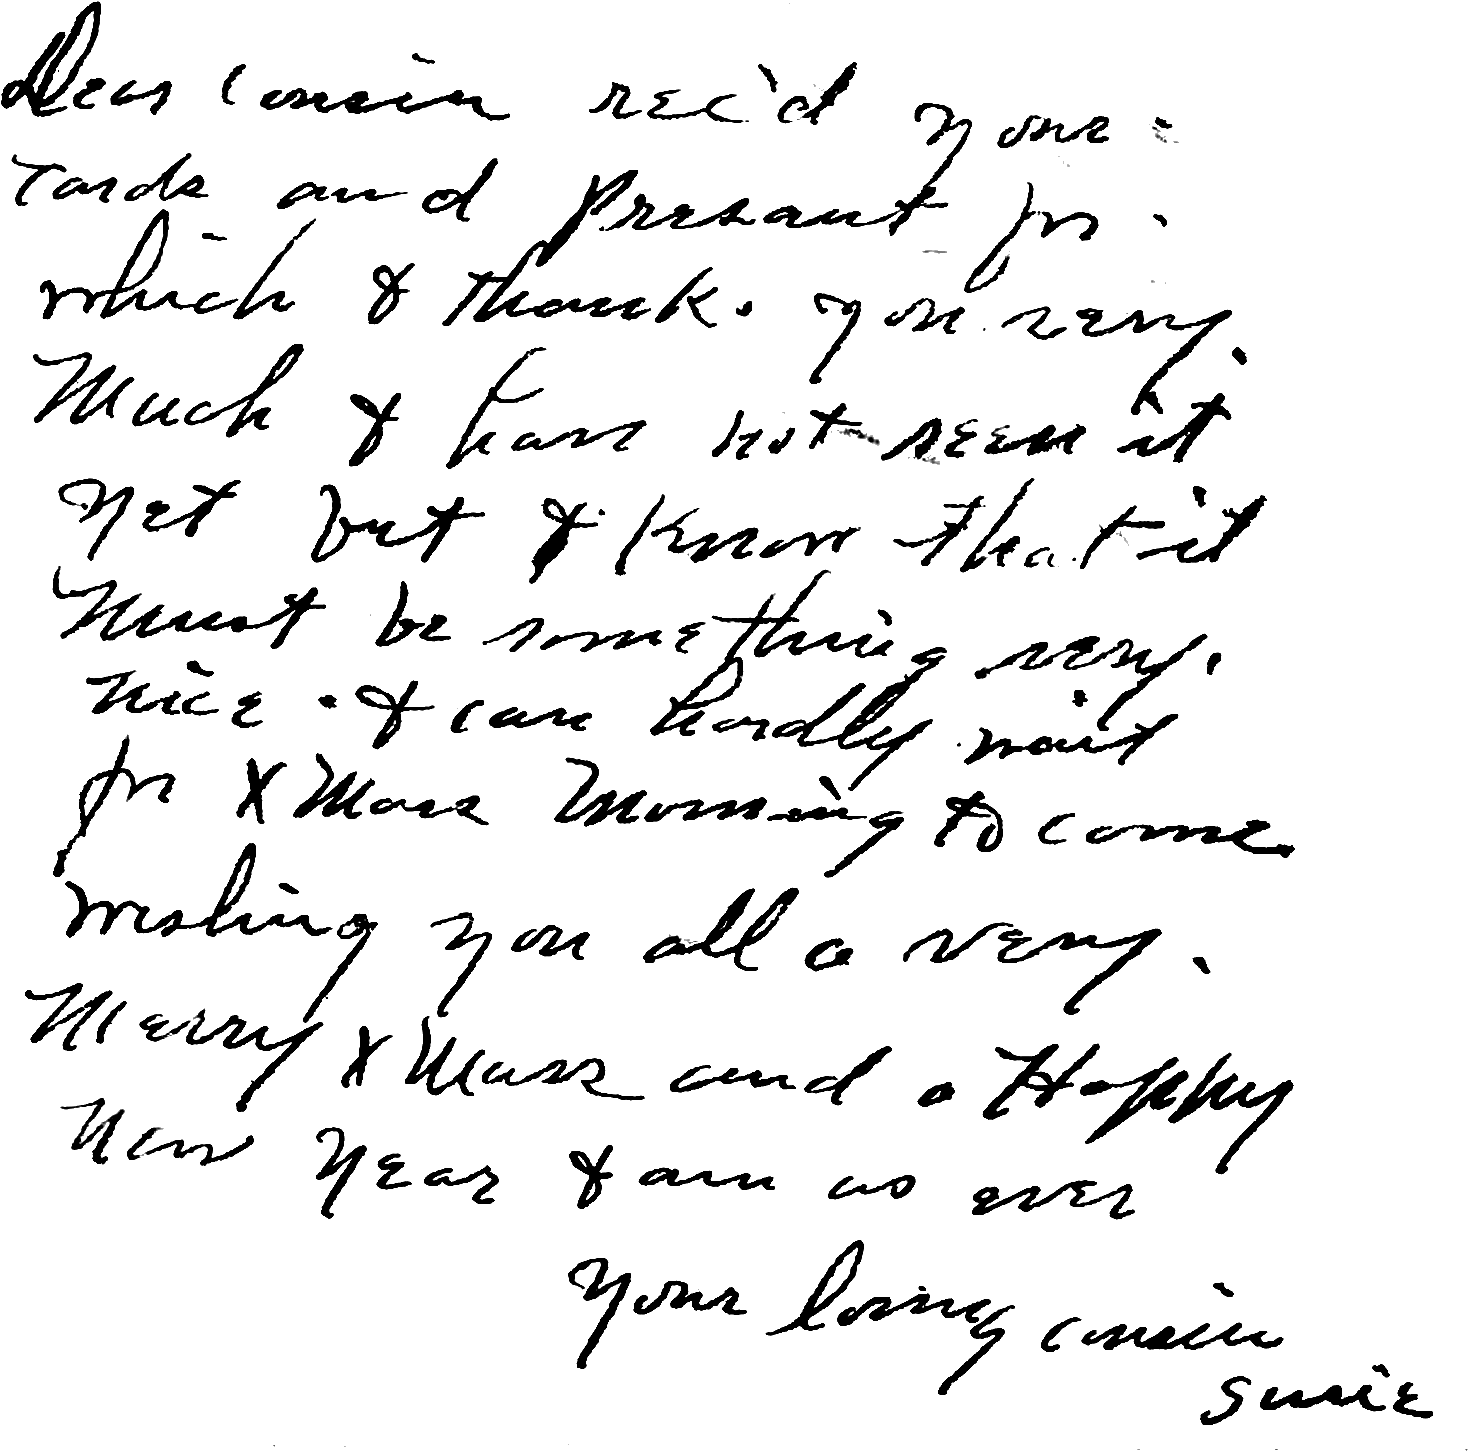 Dear Cousin rec'd your
Cards and Presant for
which I thank you very
Much I have not seen it
Yet but I Know that it
Must be something very
nice. I can hardly wait
for XMass Morning to come
wishing you all a very
Merry XMass and a Happy
New Year I am as ever
Your loving cousin
Susie